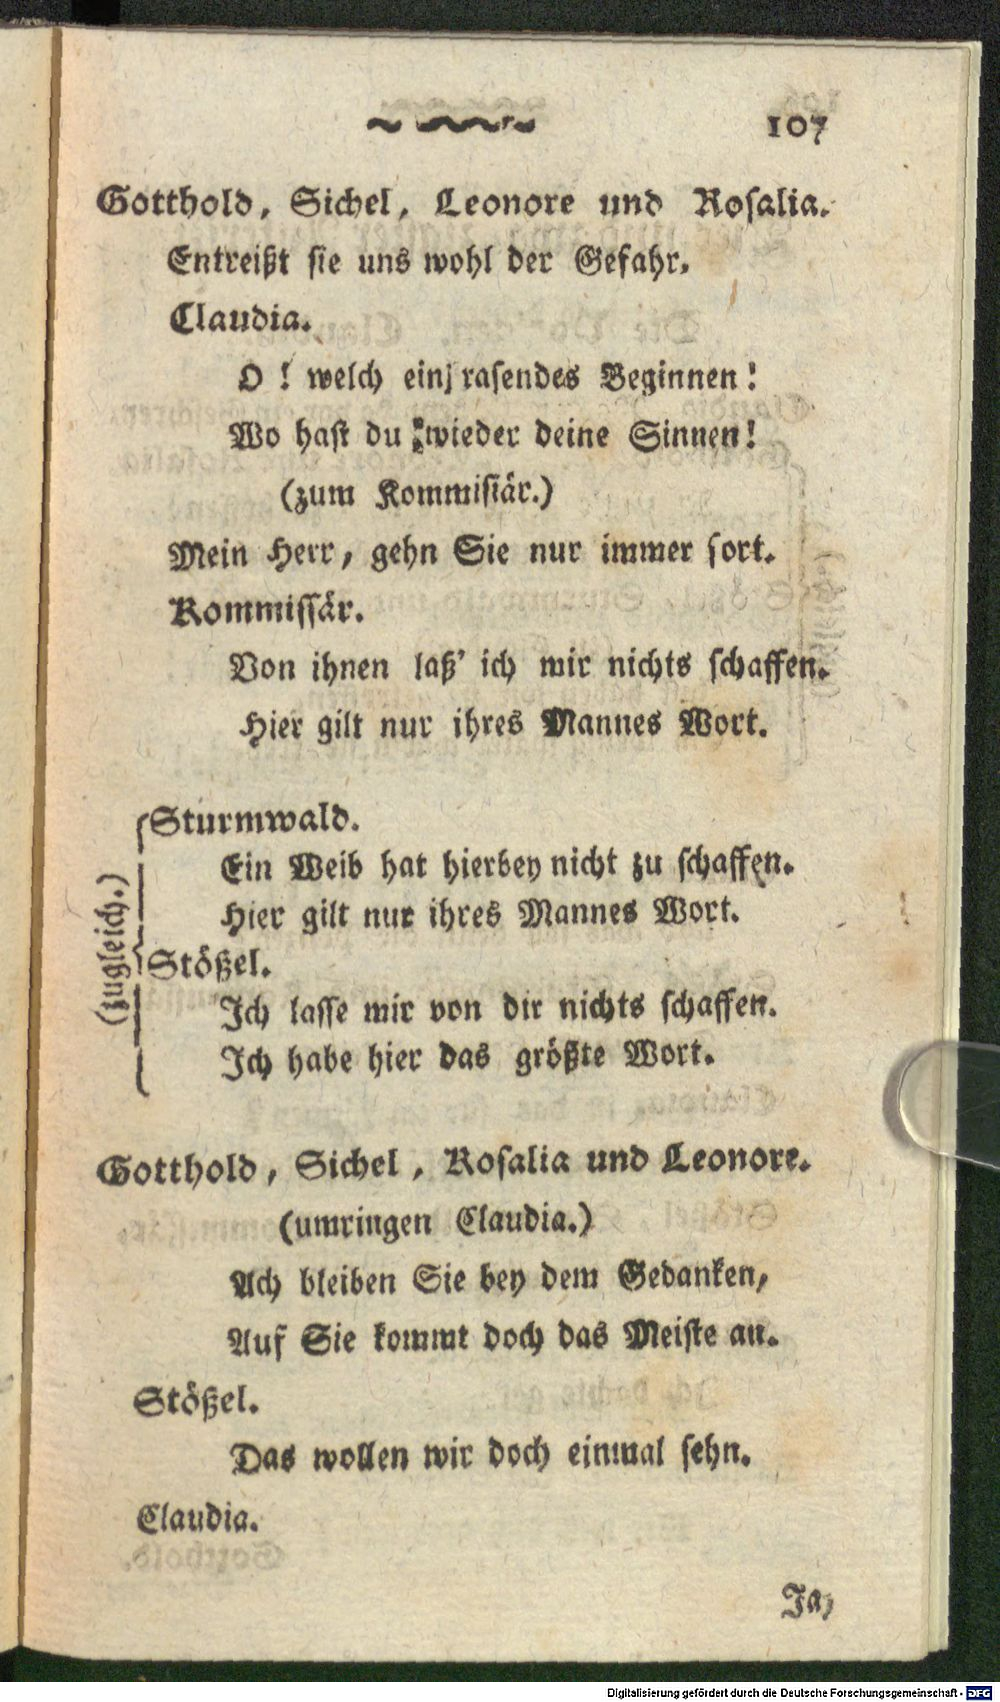 107
Gotthold, Sichel, Leonore und Rosalia.
Entreißt sie uns wohl der Gefahr.
Claudia.
O! welch ein rasendes Beginnen!
Wo hast du wieder deine Sinnen!
(zum Kommisiär.)
Mein Herr, gehn Sie nur immer fort.
Kommissär.
Von ihnen laß' ich mir nichts schaffen.
Hier gilt nur ihres Mannes Wort.
(zugleich.)
Sturmwald.
Ein Weib hat hierbey nicht zu schaffen.
Hier gilt nur ihres Mannes Wort.
Stößel.
Ich lasse mir von dir nichts schaffen.
Ich habe hier das größte Wort.
Gotthold, Sichel, Rosalia und Leonore.
(umringen Claudia.)
Ach bleiben Sie bey dem Gedanken,
Auf Sie kommt doch das Meiste an.
Stößel.
Das wollen wir doch einmal sehn.
Claudia.
Ja,
Digitalisierung gefördert durch die Deutsche Forschungsgemeinschaft - DFG